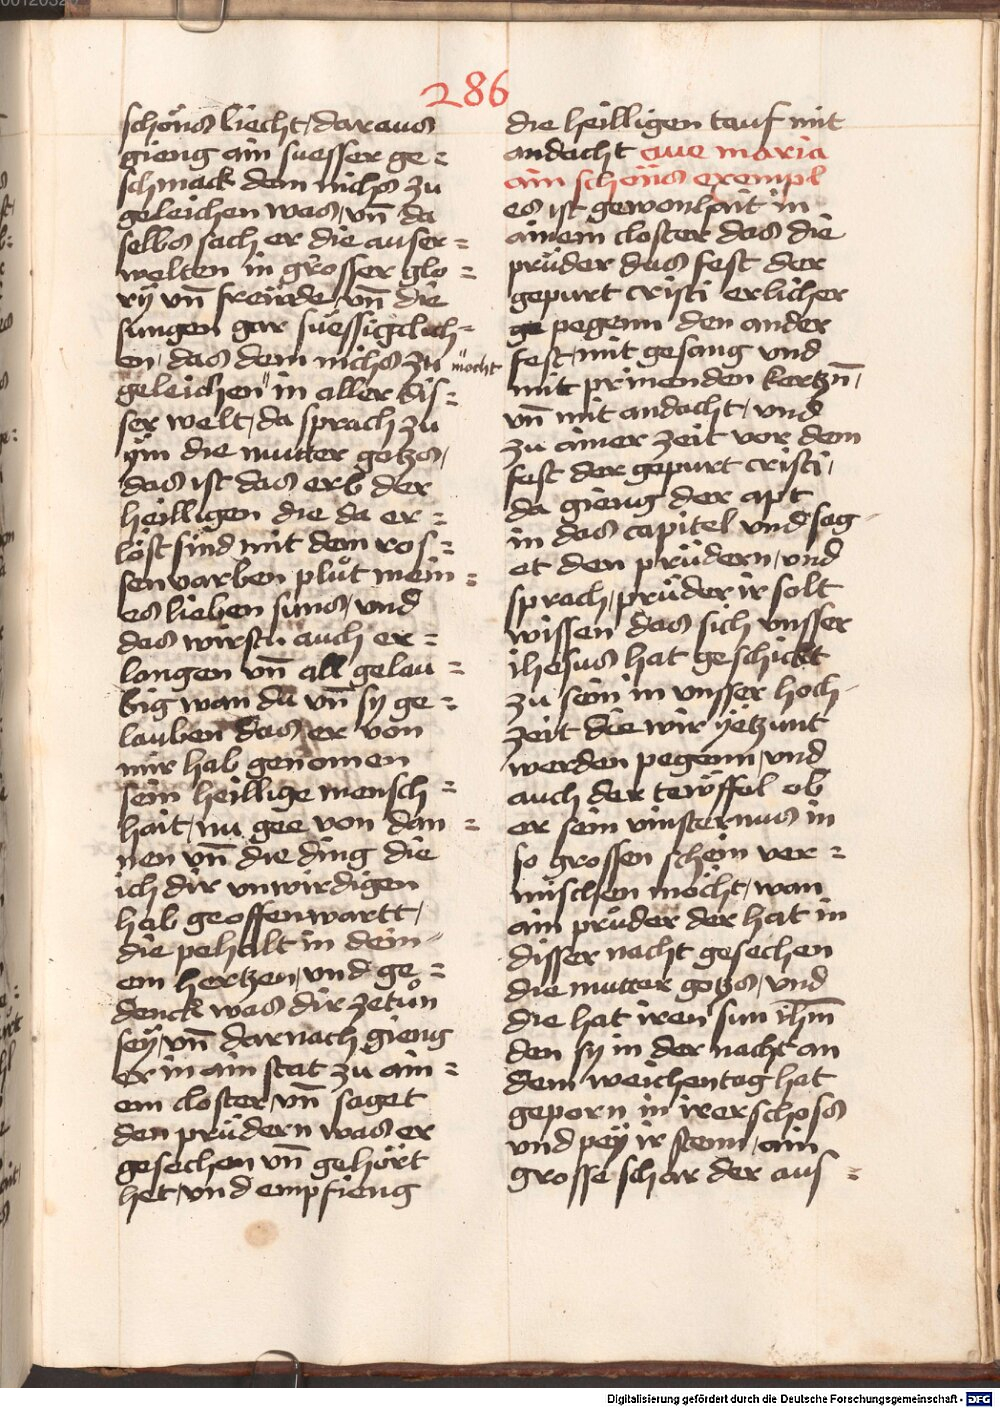 286
schöns liecht, dar aus
gieng ain suesser ge=
schmack dem nichs zu
geleichen was, vn̄ da
selbs sach er die auser=
welten in grosser glo=
rÿ vn̄ freüde, vn̄ die
sungen gar süessigclich=
en, das dem nichs zu
geleichen " in aller dis= "möcht
ser welt, da sprach zu
ÿm die mutter gotzs,
das ist das erb der
heilligen die da er=
löst sind mit dem ros=
senvarben plůt mein=
es lieben suns, vnd
das wirstu auch er=
langen vn̄ all gelau=
big wan dü vn̄ sy ge=
lauben das er von
mir hab genomen
sein heillige mensch=
hait, nu gee von dan=
nen vn̄ die ding die
ich dir vnwirdigen
hab geoffenwartt,
die pehalt in dein=
em hertzen, vnd ge=
denck was dir zetůn
seÿ, vn̄ dar nach gieng
er in ain stat zu ain=
em closter vn̄ saget
den prüdern was er
gesechen vn̄ gehört
het, vnd empfieng
die heilligen tauf mit
andacht aue maria
ain schöns exempl
es ist gewonhait in
ainem closter das die
prüder das fest der
gepurt cristi erlicher
ge pegenn den ander
fest, mit gesang vnd
mit prinenden kertzn̄,
vn̄ mit andacht, vnd
zu ainer zeit vor dem
fest der gepurt cristi,
da gieng der apt
in das capitel vnd sag
et den prüdern, vnd
sprach, prüder ir solt
wissen das sich vnsser
ihesus hat geschickt
zu sein in vnsser hoch
zeit die wir ÿetzunt
werden pegenn, vnd
auch der tewffel ob
er sein vinsternus in
so grossen schein ver=
mischen möcht, wan
ain prüder der hat in
disser nacht gesechen
die mutter gotzs, vnd
die hat iren sun ih̄m
den sy in der nacht an
dem weichentag hat
geporn in irer schoss
vnd peÿ ir stenn, ain
grosse schar der aus=
Digitalisierung gefördert durch die Deutsche Forschungsgemeinschaft - DFG